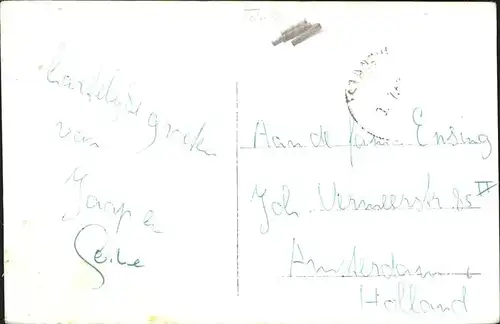 Hartelijke groeten
van
Jaap en
Aan de fam. Ensing
Joh. Vermeerstr. 85 II
Amsterdam
Holland